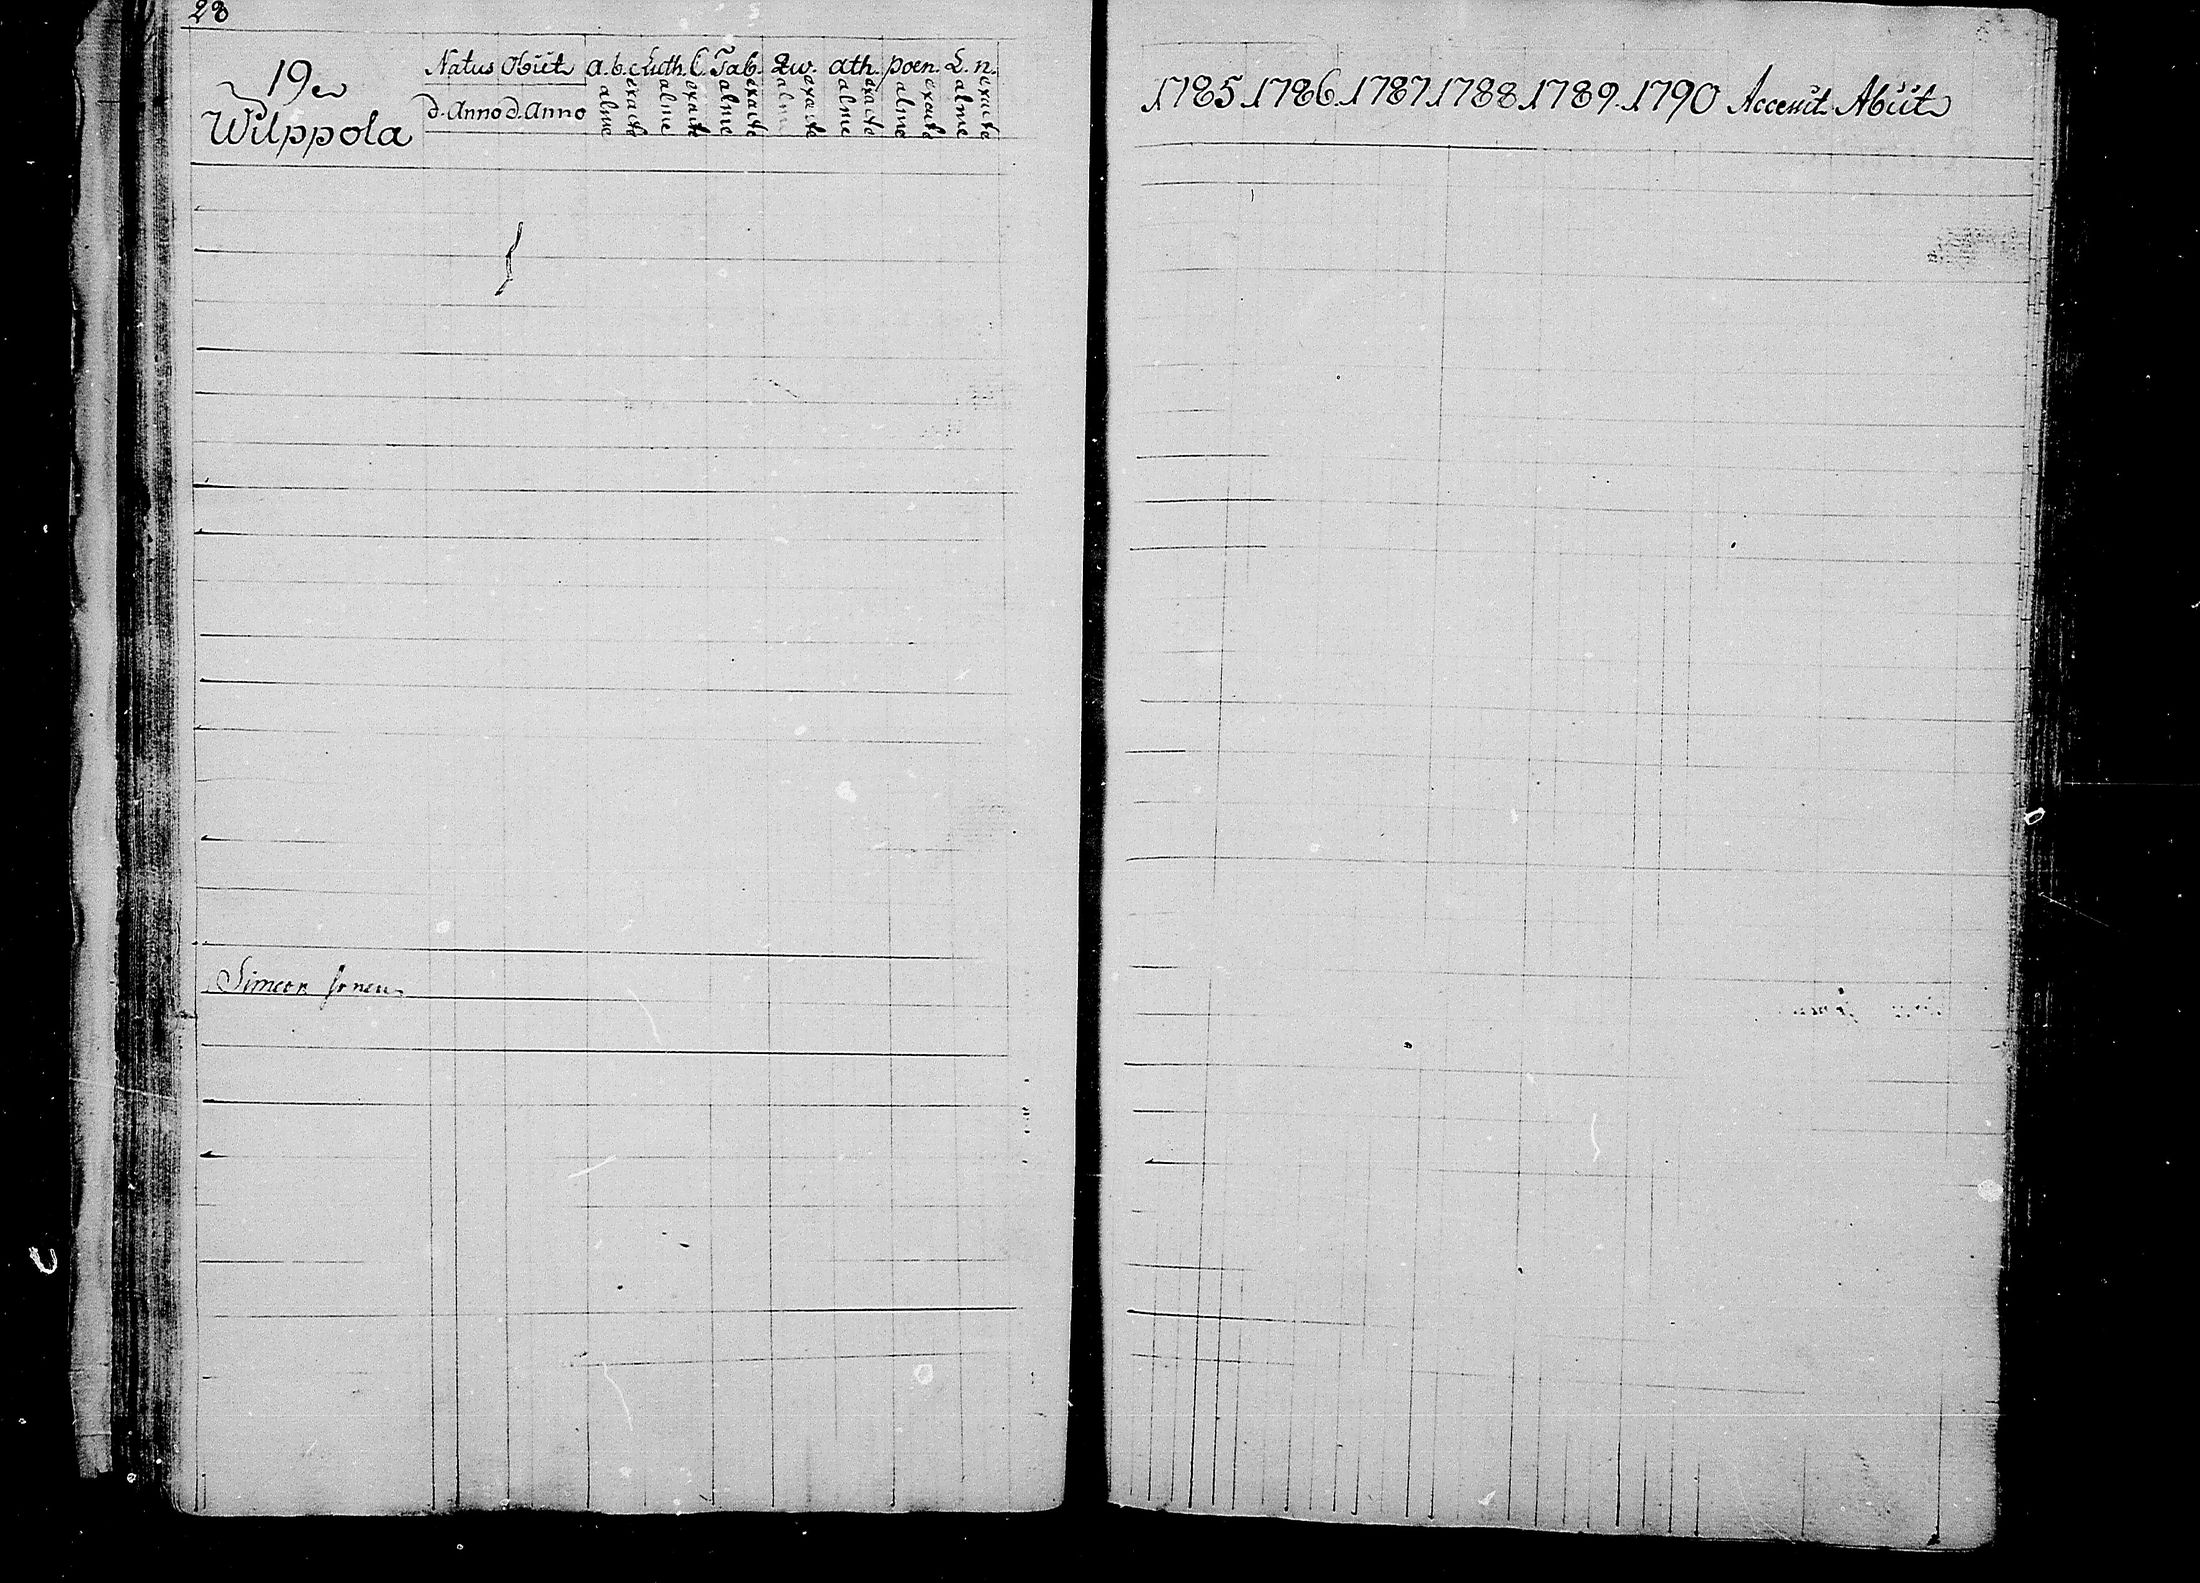 28
19
Wilppola
Natus Obiit a.b.c Luth. C. Tab. Qu. ath. poen. L. n.
d. Anno d. Anno
alme exacte alme exacte alme exacte alme exacte alme exacte alme exacte alme exacte
1785 1786 1787 1788 1789 1790 Accessit Abiit
Simeon